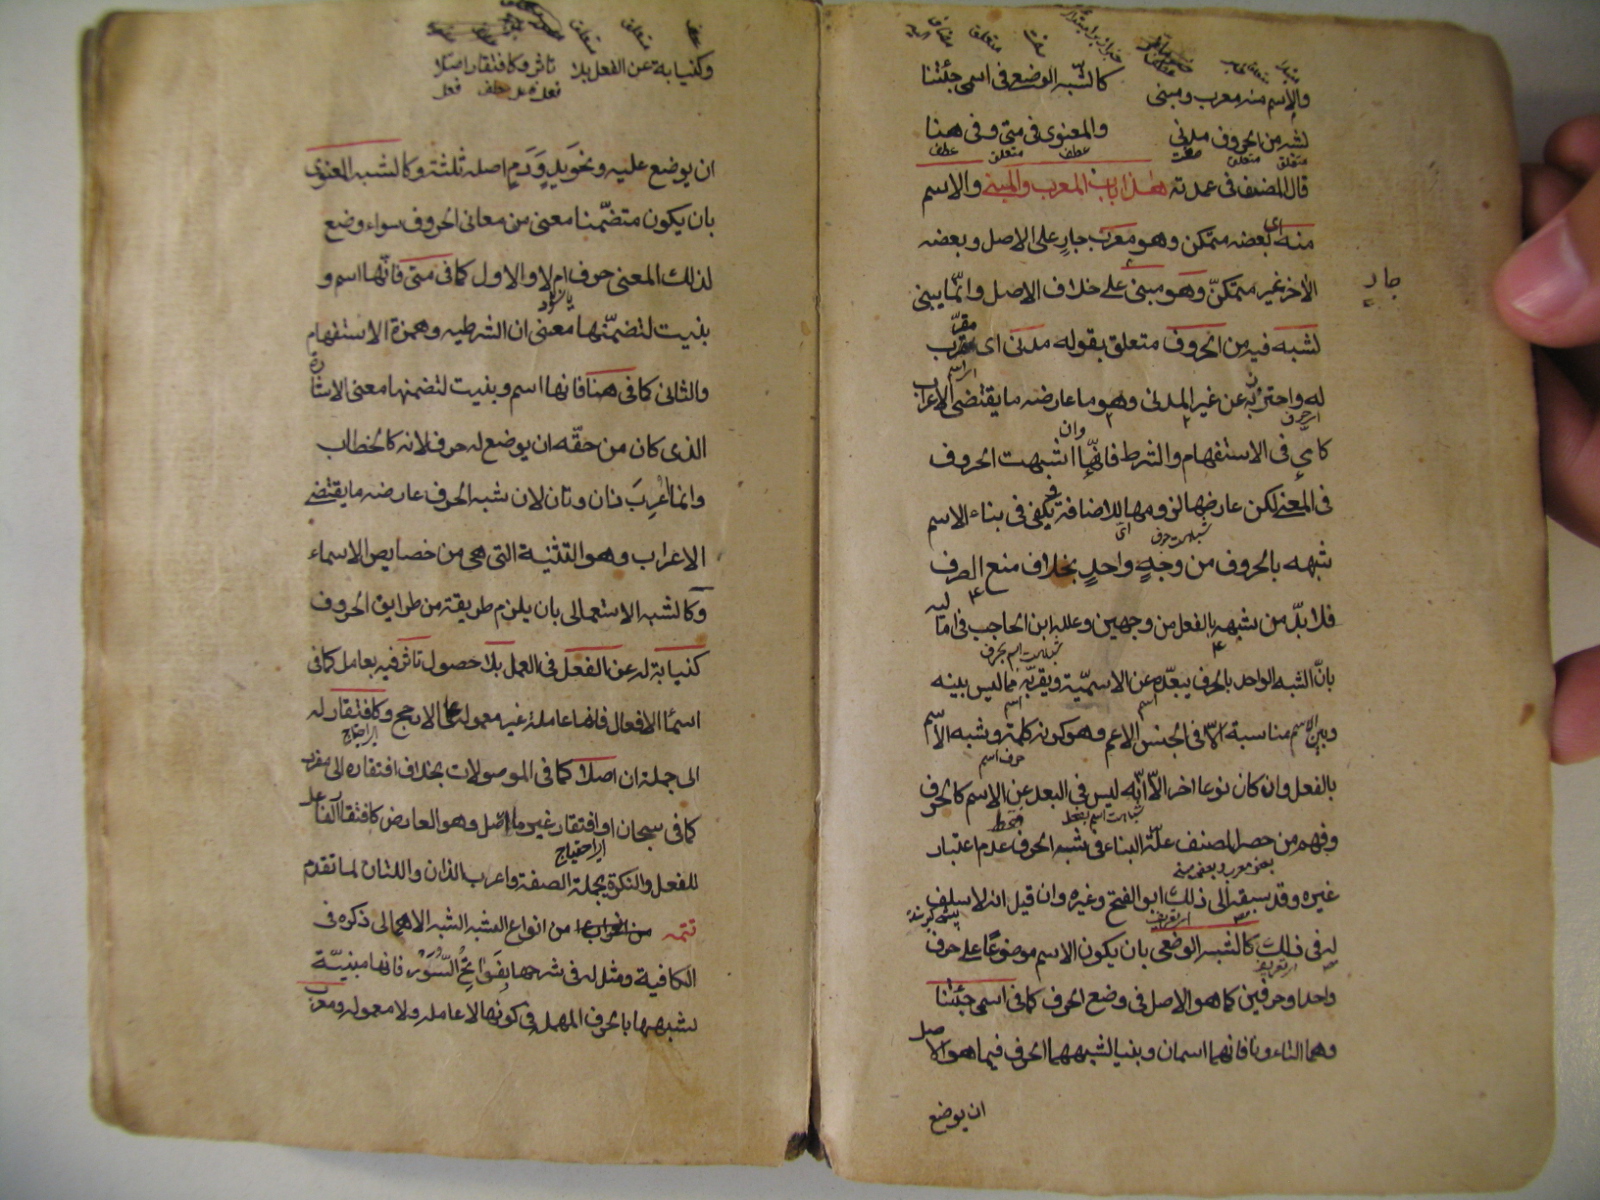 والاسم منه معرب ومبنى
لشبه من الحروف مدنى
كالشبه الوضعى فى اسمى جئتنا
والمعنوى فى متى وفى هنا
قال المصنف فى عمدته هذا باب المعرب والمبنى والاسم
منه اى بعضه متمكن وهو معرب جار على الاصل وبعضه
الاخر غير متمكن وهو مبنى على خلاف الاصل وانما يبنى
لشبه فيه من الحروف متعلق بقوله مدنى اى مقرب
له واحترز به عن غير المدنى وهو ما عارضه ما يقتضى الاعراب
كاى فى الاستفهام والشرط فانها وان اشبهت الحروف
فى المعنى لكن عارضها لزومها للاضافة فيكفى فى بناء الاسم
شبهه بالحروف من وجه واحد بخلاف منع الصرف
فلا بد من شبهه بالفعل من وجهين وعلله ابن الحاجب فى اماليه
بان الشبه الواحد بالحرف يبعده عن الاسمية ويقربه مما ليس بينه
وبين الاسم مناسبة الا فى الجنس الاعم وهو كونه كلمة وشبه الاسم
بالفعل وان كان نوعا اخر الا انه ليس فى البعد عن الاسم كالحرف
وفهم من حصر المصنف علة البناء فى شبه الحرف عدم اعتبار
غيره وقد سبقه الى ذلك ابو الفتح وغيره وان قيل انه لا سلف
له فى ذلك كالشبه الوضعى بان يكون الاسم موضوعا على حرف
واحد او حرفين كما هو الاصل فى وضع الحرف كما فى اسمى جئتنا
وهما التاء ونا فانهما اسمان وبنيا لشبههما الحرف فيما هو الاصل
ان يوضع
جار
وكنيابة عن الفعل بلا تاثر وكافتقار اصلا
ان يوضع عليه ونحو يد ودم اصله ثلثة وكالشبه المعنوى
بان يكون متضمنا معنى من معانى الحروف سواء وضع
لذلك المعنى حرف ام لا والاول كما فى متى فانها اسم و
بنيت لتضمنها معنى ان الشرطيه وهمزة الاستفهام
والثانى كما فى هنا فانها اسم وبنيت لتضمنها معنى الاشارة
الذى كان من حقه ان يوضع له حرف لانه كالخطاب
وانما اعرب ذان وتان لان شبه الحرف عارضه ما يقتضى
الاعراب وهو التثنية التى هى من خصايص الاسماء
وكالشبه الاستعمالى بان يلزم طريقة من طرايق الحروف
كنيابة له عن الفعل فى العمل بلا حصول تاثر فيه بعامل كما فى
اسماء الافعال فانها عاملة غير معمولة على الارجح وكافتقار له
الى جملة ان اصلا كما فى الموصولات بخلاف افتقاره الى مفرد
كما فى سبحان او افتقار غير ماصل وهو العارض كافتقار الفاعل
للفعل والنكرة بجملة الصفة واعرب الذان واللتان لما تقدم
تتمه من انواع الشبه الشبه الاهمالى ذكره فى
الكافية ومثل له فى شرحها بفواتح السور فانها مبنية
لشبهها بالحرف المهمل فى كونها لا عاملة ولا معمولة ومعرب